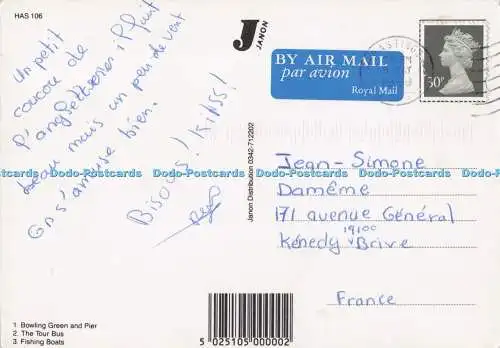 HAS 106
J
JANON
BY AIR MAIL
par avion
Royal Mail
50P
un petit
coucou de
l'angleterre il fait
beau mais un peu de vent
On s'amuse bien.
Bisous! Kisss!
Jean-Simone
Damême
171 avenue Général
Kénedy 19100 Brive
France
Janon Distribution 0342-712202
1. Bowling Green and Pier
2. The Tour Bus
3. Fishing Boats
5 025105 000002
Dodo-Postcards Dodo-Postcards Dodo-Postcards Dodo-Postcards Dodo-Postcards Dodo-Postcards